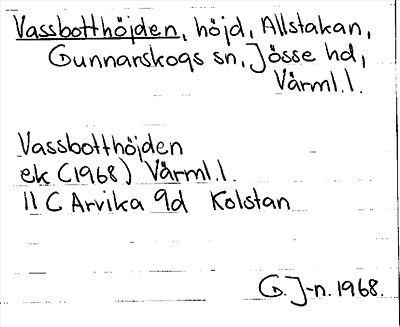 Vassbotthöjden, höjd, Allstakan,
Gunnarskogs sn, Jösse hd,
Värml.l.
Vassbotthöjden
ek (1968) Värml.l.
11 C Arvika 9d Kolstan
G. J-n. 1968.